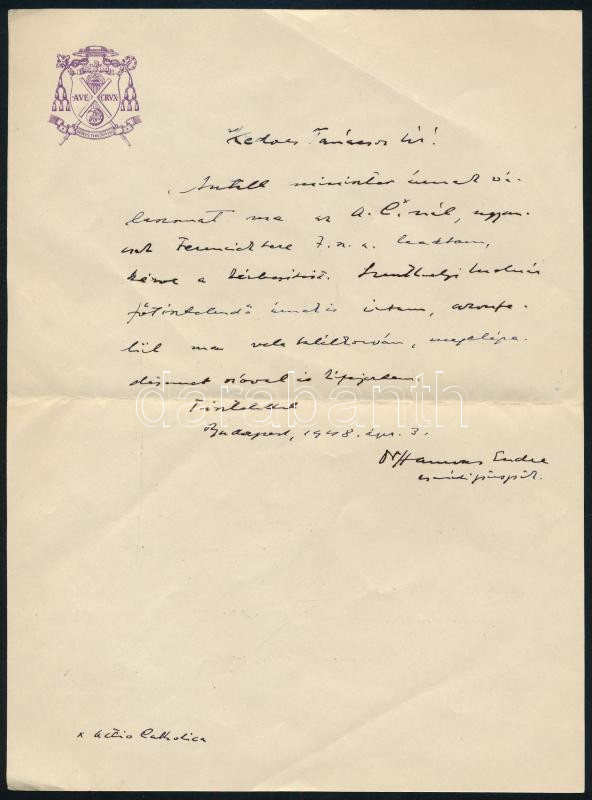 AVE CRVX
Kedves Tanácsos Úr!
Antall miniszter úrnak vá-
laszomat ma az A. C.ˣ-nál, ugyan-
csak Ferenciek tere 7. sz. a. leadtam,
kérve a kézbesítést.
főintendáns úrnak is írtam, azonfe-
lül ma vele találkozván, megelége-
désemet szóval is kifejeztem.
Tisztelettel
Budapest, 1948. ápr. 3.
Dr Hamvas Endre
csanádi püspök.
x Actio Catholica
darabanth